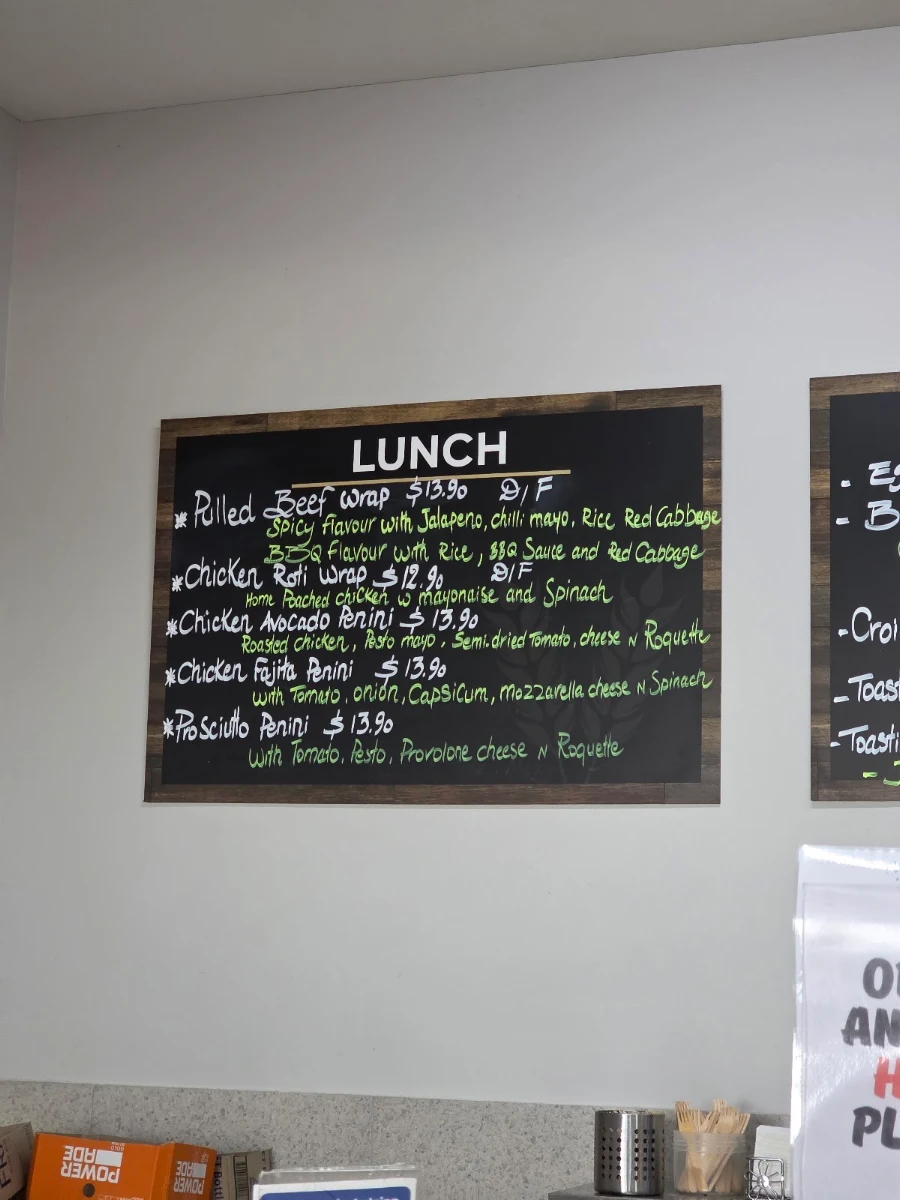 LUNCH
* Pulled Beef Wrap $13.90 D/F
Spicy Flavour with Jalapeno, chilli mayo, Rice Red Cabbage
BBQ Flavour with Rice, BBQ Sauce and Red Cabbage
* Chicken Roti Wrap $12.90 D/F
Home Poached chicken w mayonaise and Spinach
* Chicken Avocado Penini $13.90
Roasted chicken, Pesto mayo, Semi.dried Tomato, cheese N Roquette
* Chicken Fajita Penini $13.90
with Tomato, onion, Capsicum, mozzarella cheese N Spinach
* ProSciutto Penini $13.90
with Tomato, Pesto, Provolone cheese N Roquette
- Es
- B
- Croi
- Toas
- Toasti
-
O
AN
H
PL
POWER
ADE
POWER
ADE